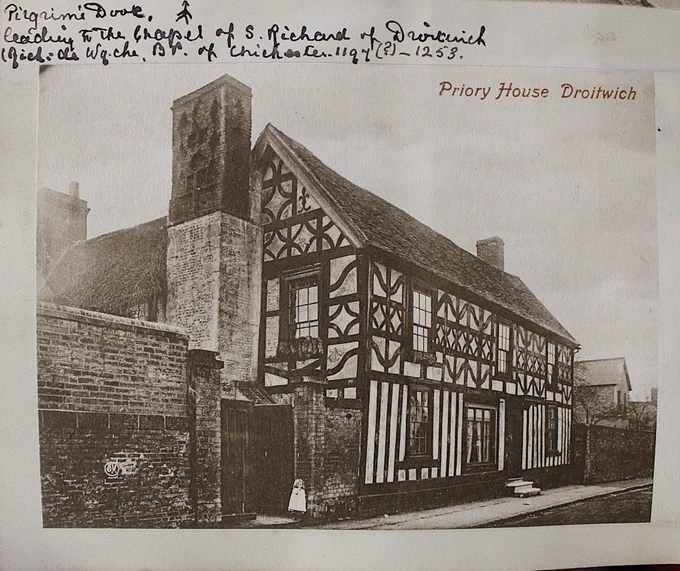 Pilgrim's Door,
leading to the Chapel of S. Richard of Droitwich
(Rich: de Wyche, Bp. of Chichester. 1197(?) – 1253.
Priory House Droitwich